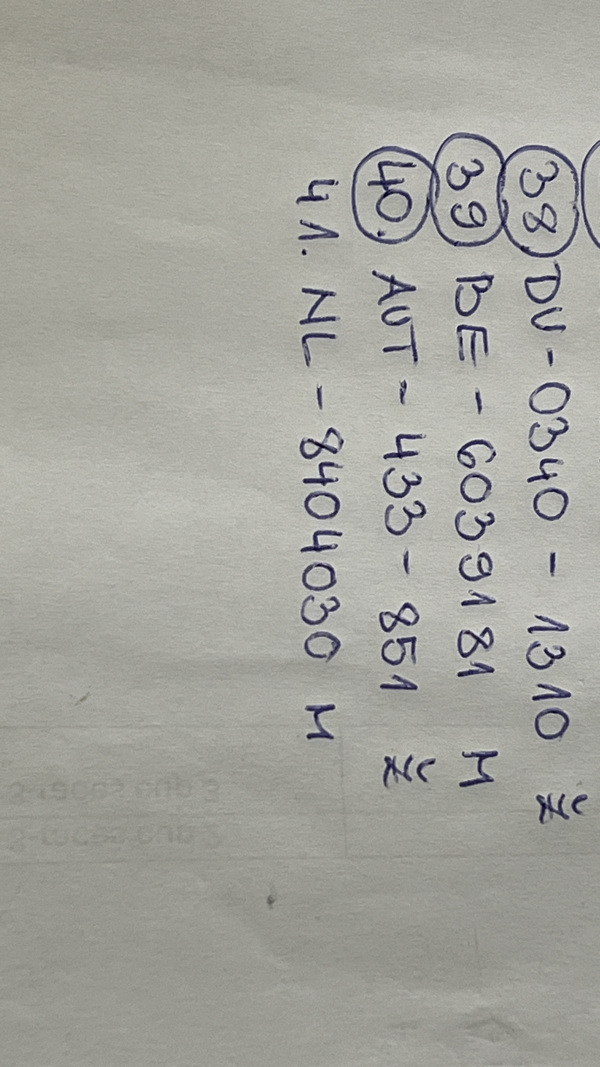 38 DV-0340-1310 Ž
39 BE-6039181 M
40. AUT-433-851 Ž
41. NL-8404030 M